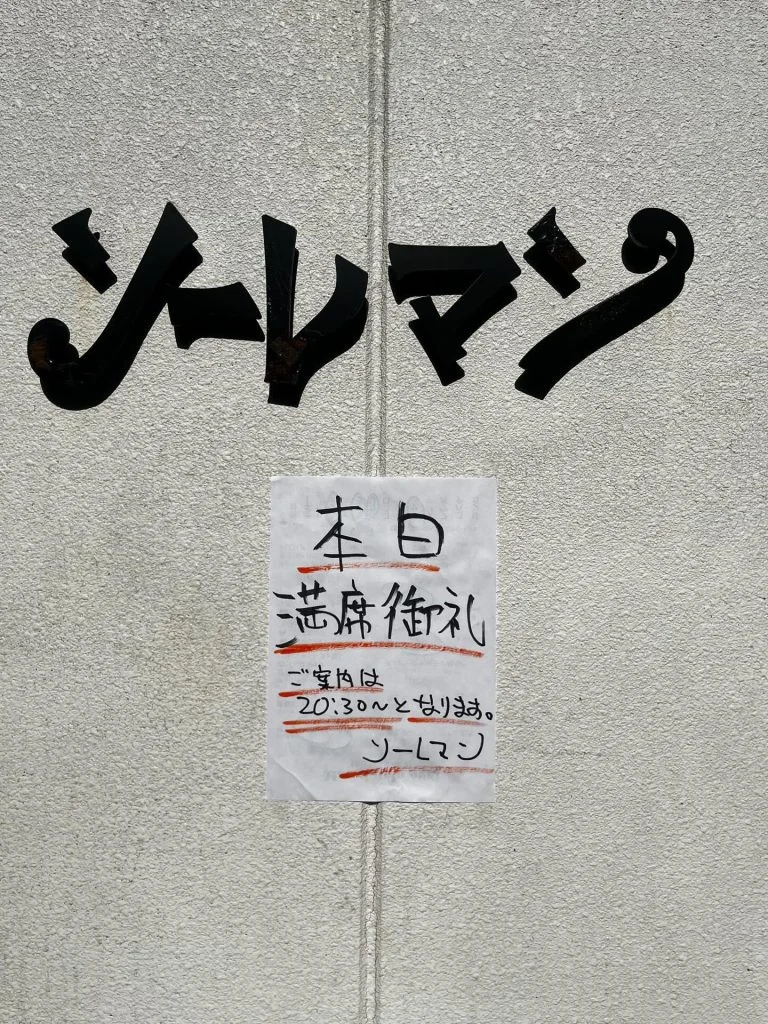 ソーレマン
本日
満席御礼
ご案内は
20:30〜となります。
ソーレマン